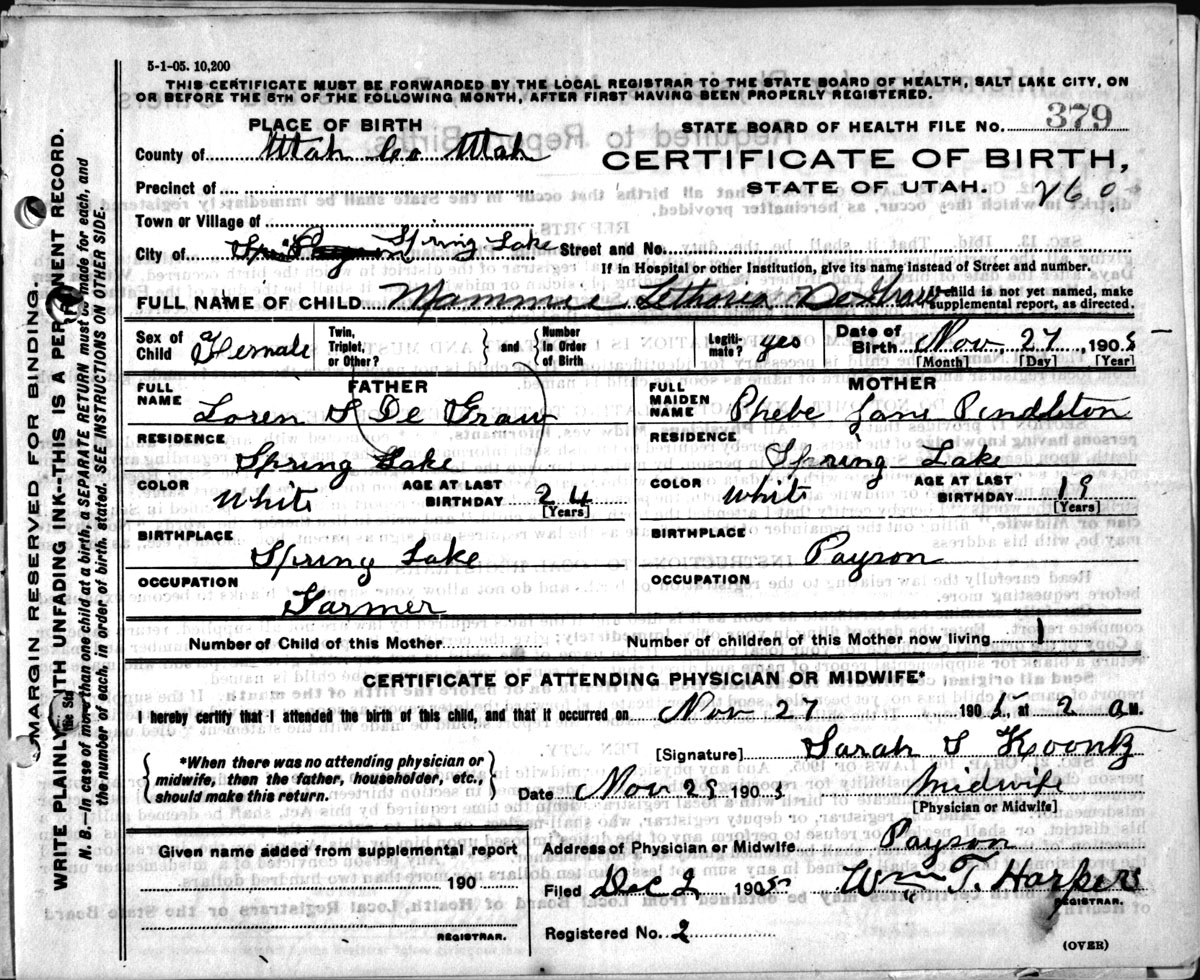 5-1-05. 10,200
THIS CERTIFICATE MUST BE FORWARDED BY THE LOCAL REGISTRAR TO THE STATE BOARD OF HEALTH, SALT LAKE CITY, ON
OR BEFORE THE 5TH OF THE FOLLOWING MONTH, AFTER FIRST HAVING BEEN PROPERLY REGISTERED.
PLACE OF BIRTH
STATE BOARD OF HEALTH FILE No. 379
County of Utah Co Utah
CERTIFICATE OF BIRTH,
STATE OF UTAH. 260
Precinct of
Town or Village of
City of Spring Lake Street and No.
If in Hospital or other Institution, give its name instead of Street and number.
FULL NAME OF CHILD Mammie De Graw
child is not yet named, make
supplemental report, as directed.
Sex of Child Female
Twin, Triplet, or Other? and Number In Order of Birth
Legiti-mate? yes
Date of Birth Nov, 27, 1905
[Month] [Day] [Year]
FATHER
FULL NAME Loren S De Graw
RESIDENCE
Spring Lake
COLOR White AGE AT LAST BIRTHDAY 24
[Years]
BIRTHPLACE
Spring Lake
OCCUPATION
Farmer
MOTHER
FULL MAIDEN NAME Phebe Jane Pendleton
RESIDENCE
Spring Lake
COLOR White AGE AT LAST BIRTHDAY 19
[Years]
BIRTHPLACE
Payson
OCCUPATION
Number of Child of this Mother Number of children of this Mother now living 1
CERTIFICATE OF ATTENDING PHYSICIAN OR MIDWIFE*
I hereby certify that I attended the birth of this child, and that it occurred on Nov 27 1905, at 2 a M.
[Signature] Sarah S Koontz
*When there was no attending physician or
midwife, then the father, householder, etc.,
should make this return.
Date Nov 29 1905 Midwife
[Physician or Midwife]
Given name added from supplemental report
190
REGISTRAR.
Address of Physician or Midwife Payson
Filed Dec 2 1905 Wm T. Harper
REGISTRAR.
Registered No. 2
(OVER)
MARGIN RESERVED FOR BINDING.
WRITE PLAINLY WITH UNFADING INK--THIS IS A PERMANENT RECORD.
N. B.—In case of more than one child at a birth, a SEPARATE RETURN must be made for each, and
the number of each, in order of birth, stated. SEE INSTRUCTIONS ON OTHER SIDE.